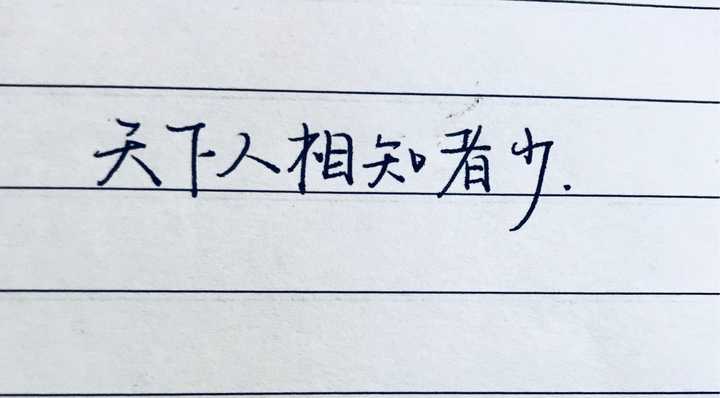 天下人相知者少.